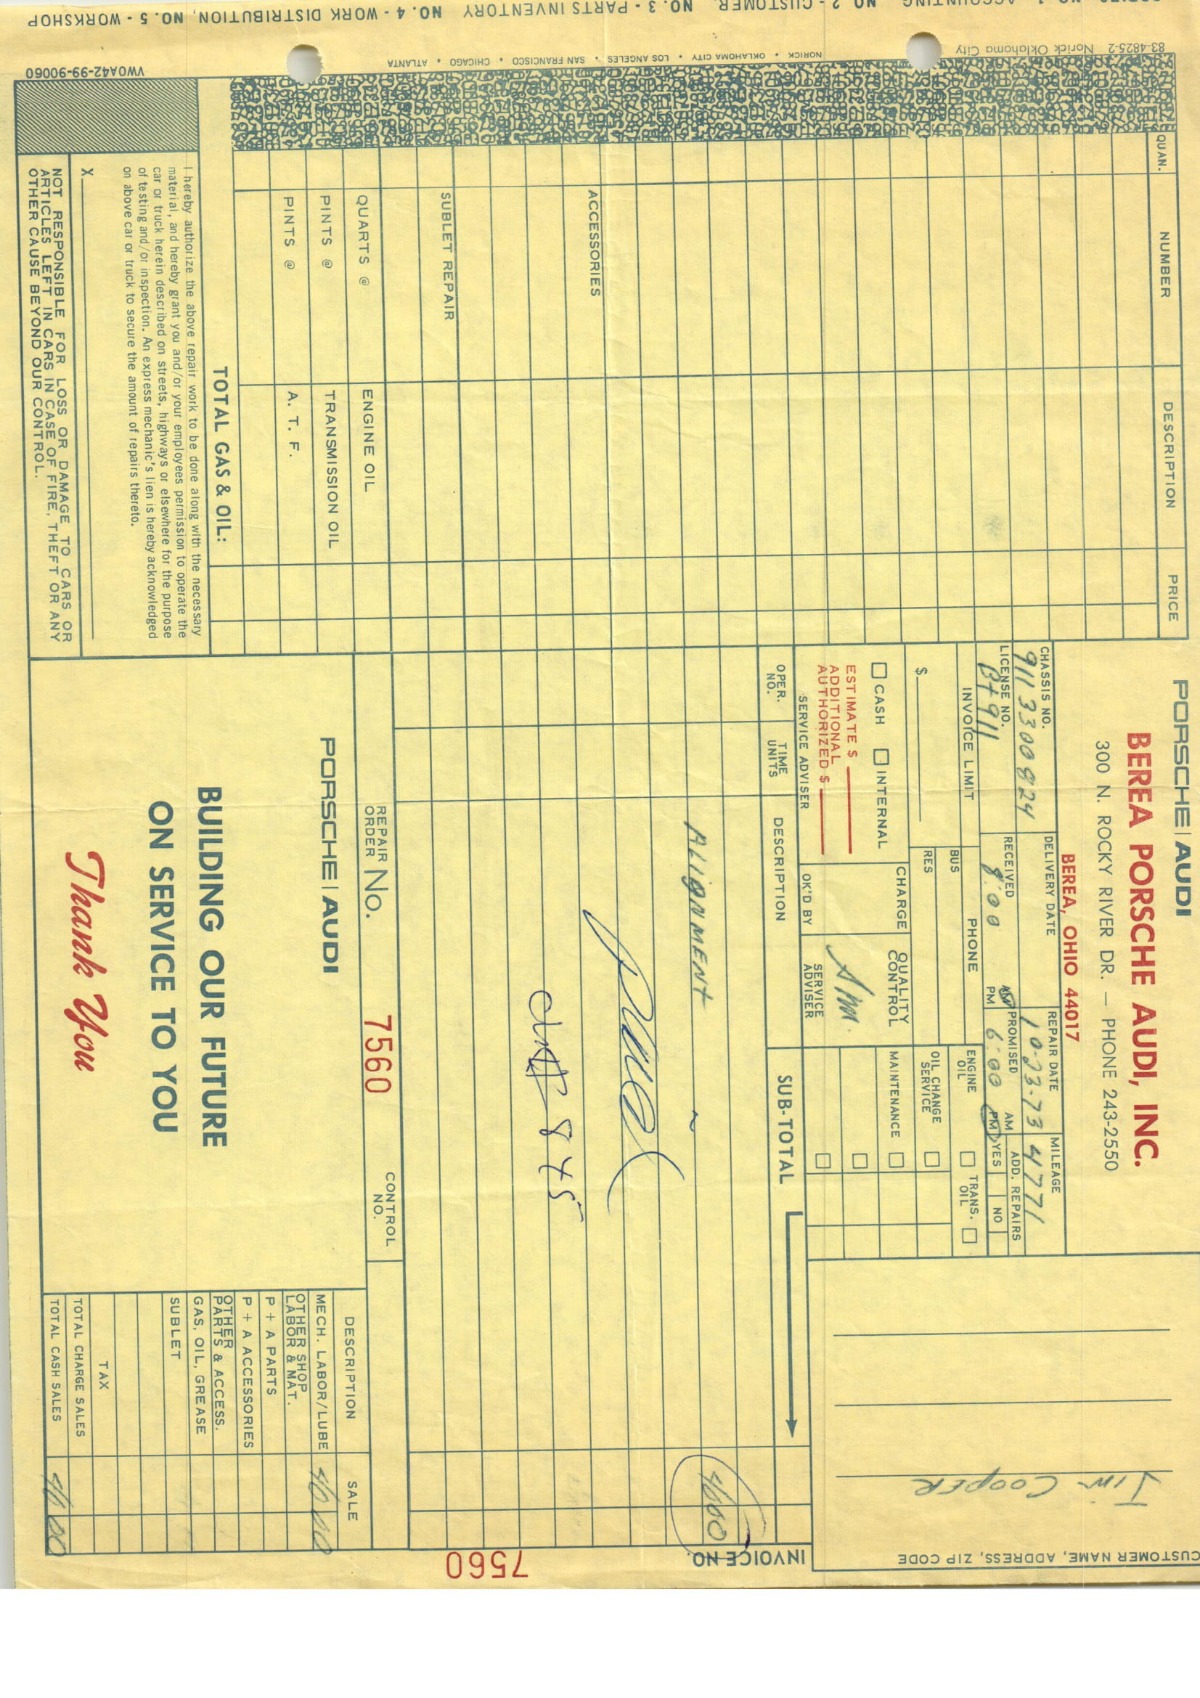 PORSCHE | AUDI
BEREA PORSCHE AUDI, INC.
300 N. ROCKY RIVER DR. — PHONE 243-2550
BEREA, OHIO 44017
CHASSIS NO. DELIVERY DATE REPAIR DATE MILEAGE
9113300824 10-23-73 4771
LICENSE NO. RECEIVED AM PM PROMISED AM PM ADD. REPAIRS YES NO
BT911 8:00 6:00
INVOICE LIMIT PHONE ENGINE OIL TRANS. OIL
$ BUS
RES
OIL CHANGE SERVICE
CASH INTERNAL CHARGE QUALITY CONTROL MAINTENANCE
ESTIMATE $
ADDITIONAL AUTHORIZED $
SERVICE ADVISER OK'D BY SERVICE ADVISER
OPER. NO. TIME UNITS DESCRIPTION SUB-TOTAL
CUSTOMER NAME, ADDRESS, ZIP CODE
Jim Cooper
INVOICE NO.
7560
ALIGNMENT 4600
845
REPAIR ORDER NO. 7560 CONTROL NO.
PORSCHE | AUDI
BUILDING OUR FUTURE
ON SERVICE TO YOU
Thank You
DESCRIPTION SALE
MECH. LABOR/LUBE 4600
OTHER SHOP LABOR & MAT.
P + A PARTS
P + A ACCESSORIES
OTHER PARTS & ACCESS.
GAS, OIL, GREASE
SUBLET
TAX
TOTAL CHARGE SALES
TOTAL CASH SALES 4600
QUAN. NUMBER DESCRIPTION PRICE
ACCESSORIES
SUBLET REPAIR
QUARTS @ ENGINE OIL
PINTS @ TRANSMISSION OIL
PINTS @ A. T. F.
TOTAL GAS & OIL:
I hereby authorize the above repair work to be done along with the necessary
material, and hereby grant you and/or your employees permission to operate the
car or truck herein described on streets, highways or elsewhere for the purpose
of testing and/or inspection. An express mechanic's lien is hereby acknowledged
on above car or truck to secure the amount of repairs thereto.
X
NOT RESPONSIBLE FOR LOSS OR DAMAGE TO CARS OR
ARTICLES LEFT IN CARS IN CASE OF FIRE, THEFT OR ANY
OTHER CAUSE BEYOND OUR CONTROL.
83-4825-2 Norick Oklahoma City
NORICK • OKLAHOMA CITY • LOS ANGELES • SAN FRANCISCO • CHICAGO • ATLANTA
VWOA42-99-90060
NO. 1 - ACCOUNTING, NO. 2 - CUSTOMER, NO. 3 - PARTS INVENTORY NO. 4 - WORK DISTRIBUTION, NO. 5 - WORKSHOP